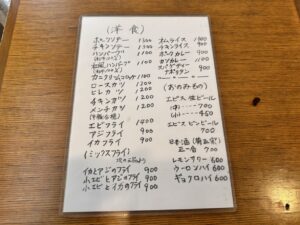 (洋食)
ポークソテー 1300
チキンソテー 1100
ハンバーグ 1100
和風ハンバーグ 1100
カニクリームコロッケ 1100
ロースカツ 1300
ヒレカツ 1200
チキンカツ 1200
メンチカツ 1200
エビフライ 1400
アジフライ 900
イカフライ 900
(ミックスフライ)
イカとアジのフライ 900
小エビとアジのフライ 900
小エビとイカのフライ 900
オムライス
チキンライス 900
ポークカレー 900
カツカレー 1100
スパゲティー
ナポリタン 900
(おのみもの)
エビス生ビール
(中) 700
エビスビンビール
700
日本酒(菊正宗)
正一合 700
レモンサワー 600
ウーロンハイ 600
ギョクロハイ 600